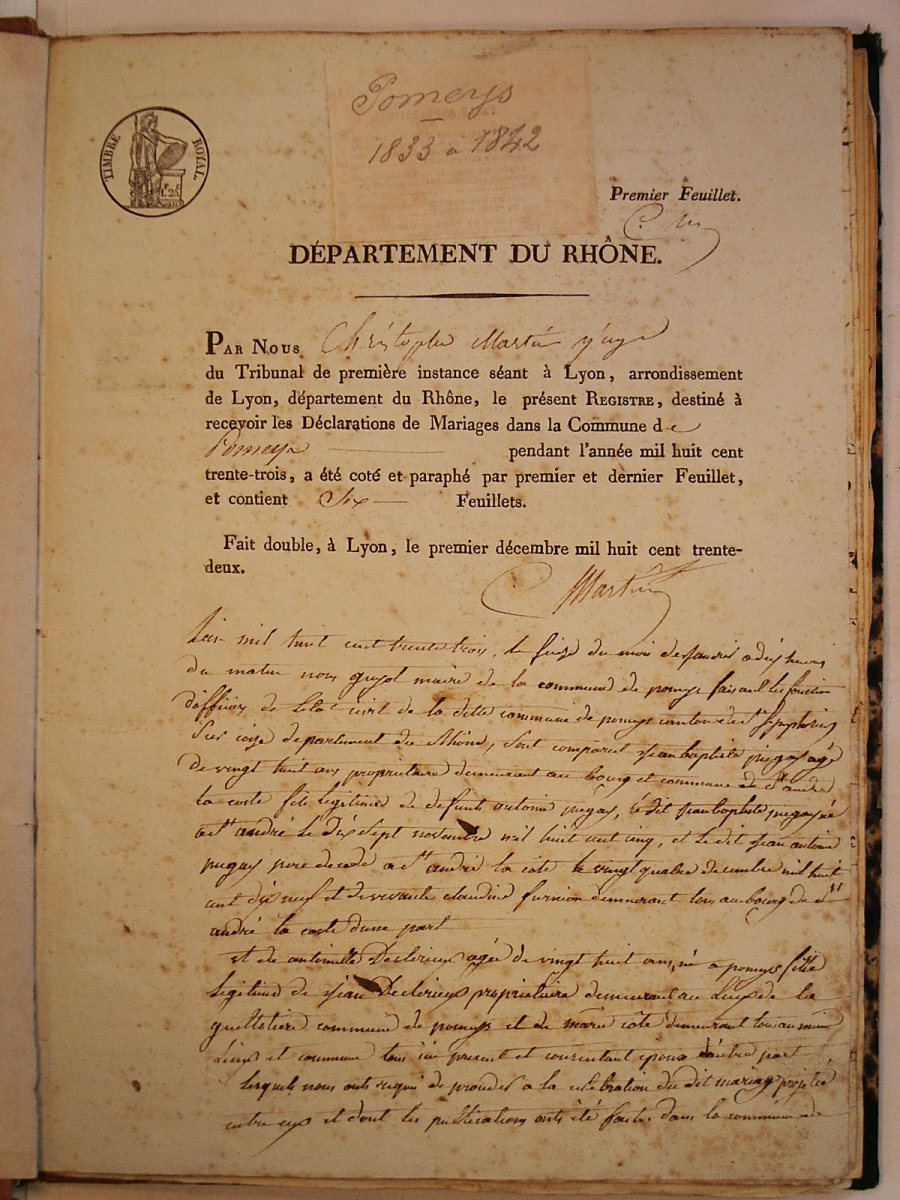 Pomeys
1833 a 1842
TIMBRE ROYAL.
Premier Feuillet.
DÉPARTEMENT DU RHÔNE.
PAR NOUS Christophe Martin
du Tribunal de première instance séant à Lyon, arrondissement
de Lyon, département du Rhône, le présent REGISTRE, destiné à
recevoir les Déclarations de Mariages dans la Commune de
Pomeys pendant l'année mil huit cent
trente-trois, a été coté et paraphé par premier et dernier Feuillet,
et contient Six Feuillets.
Fait double, à Lyon, le premier décembre mil huit cent trente-
deux.
C Martin
Lan mil huit cent trente trois, le seize du mois de Janvier a dix heures
du matin nous guyot maire de la commune de pomeys faisant les fonction
d'officier de letat civil de la ditte commune de pomeys canton de St Symphorien
Sur coise departement du Rhône, sont comparut jean baptiste pugay agé
de vingt huit ans proprietaire demeurant au bourg et commune de St andré
la coste fils legitime de defunt antoine pugay, le dit jean baptiste pugay né
a St andré le dix sept novembre mil huit cent cinq, et le dit jean antoine
pugay pere decedé a St andré la côte le vingt quatre decembre mil huit
cent dix neuf et de vivante claudine furnion demeurant tous au bourg de St
andré la coste dune part
et de antoinette Declerieux agée de vingt huit ans, né a pomeys fille
legitime de jean Declerieux proprietaire demeurant au lieu de la
commune de pomeys et de marie côte demeurant tous au même
Lieu et commune tous ici present et consentant dautre part
lesquels nous onts requi de proceder a la celebration du dit mariage projetée
entre eux et dont les publications onts été faites dans la commune de